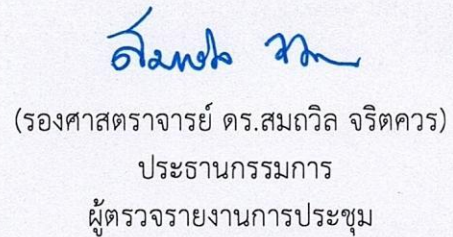 (รองศาสตราจารย์ ดร.สมถวิล จริตควร)
ประธานกรรมการ
ผู้ตรวจรายงานการประชุม